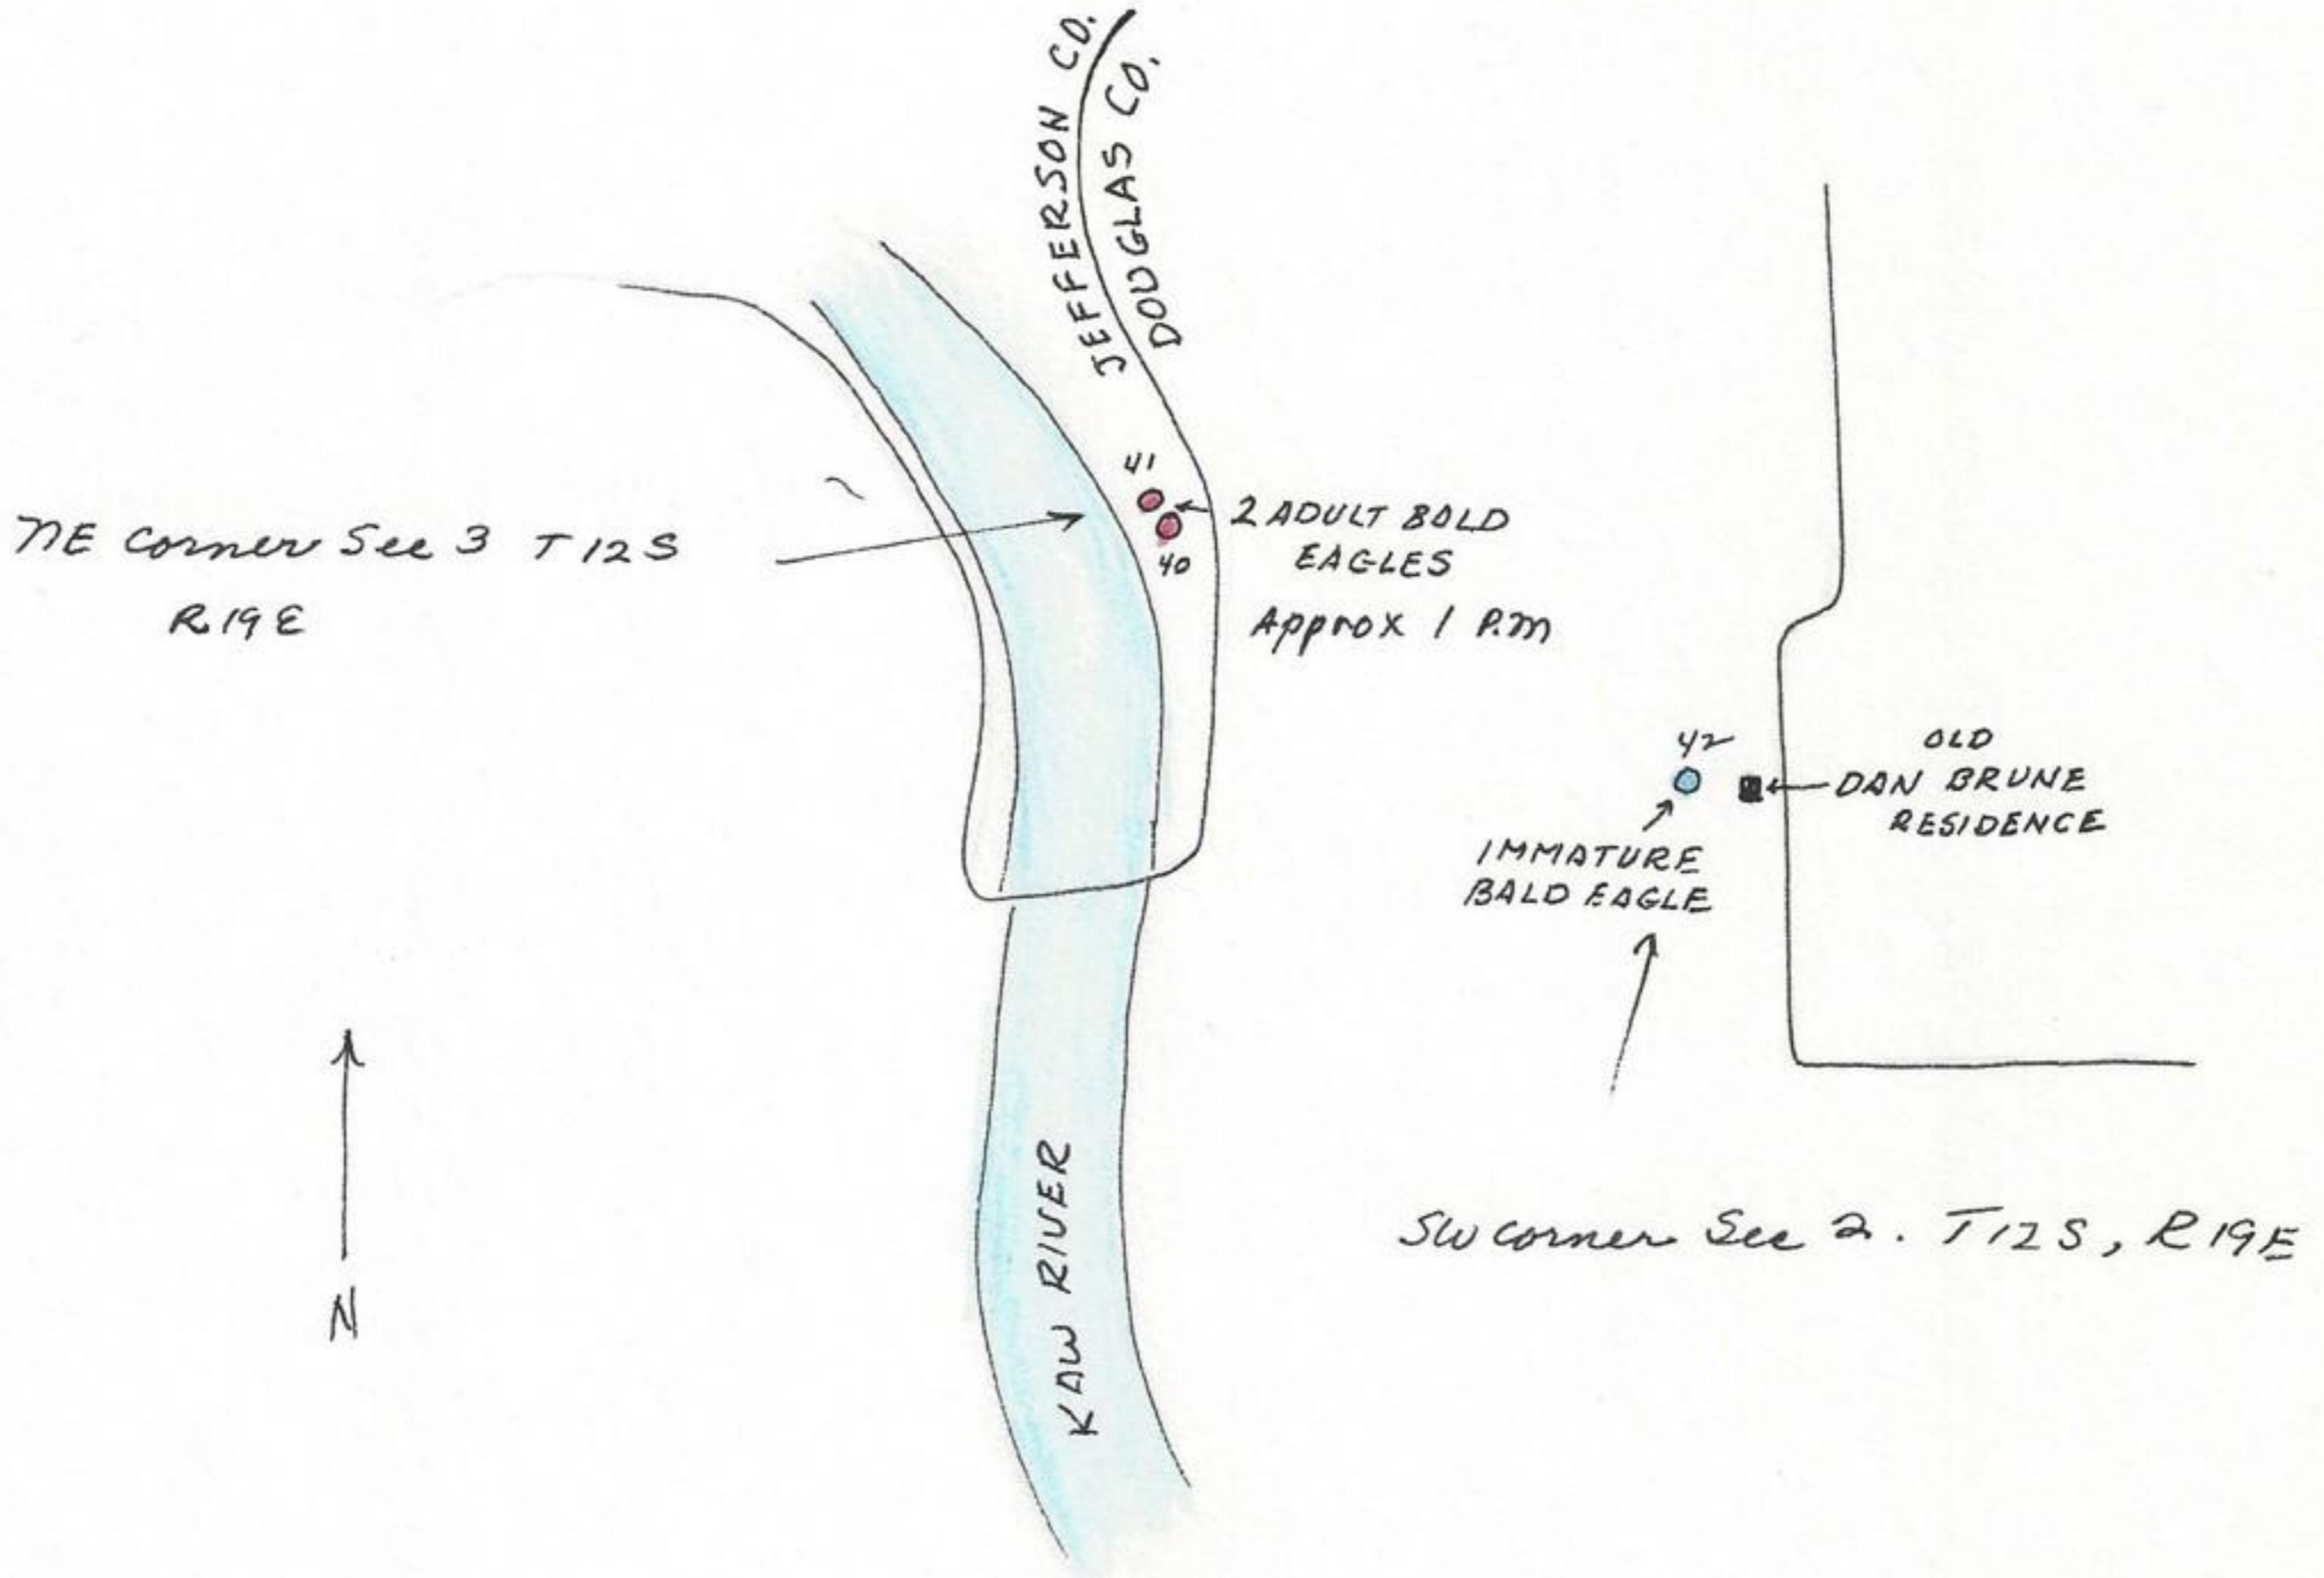 JEFFERSON CO.
DOUGLAS CO.
41
2 ADULT BALD
EAGLES
40
Approx 1 P.M
NE Corner Sec 3 T12S
R19E
42
OLD
DAN BRUNE
RESIDENCE
IMMATURE
BALD EAGLE
KAW RIVER
SW corner Sec 2. T12S, R19E
N